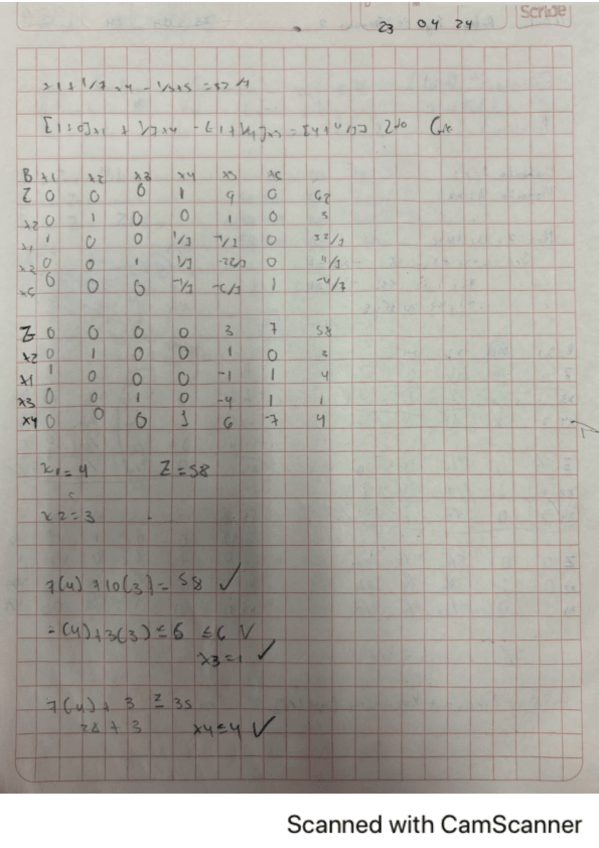 Scribe
23 04 24
x1 + 1/7 x4 - 1/7 x5 = 32/7
[1+0]x1 + 1/7 x4 - [1+ ]x5 = [4+4/7] 2do
B x1 x2 x3 x4 x5 x6
Z 0 0 0 1 9 0 62
x2 0 1 0 0 1 0 3
x1 1 0 0 1/7 -1/7 0 32/7
x3 0 0 1 1/7 -22/7 0 11/7
x6 0 0 0 -1/7 -6/7 1 -4/7
Z 0 0 0 0 3 7 58
x2 0 1 0 0 1 0 3
x1 1 0 0 0 -1 1 4
x3 0 0 1 0 -4 1 1
x4 0 0 0 1 6 -7 4
x1 = 4 Z = 58
x2 = 3
7(4) + 10(3) = 58 ✓
-(4) + 3(3) ≤ 6 ≤ 6 ✓
x3 = 1 ✓
7(4) + 3 ≤ 35
28 + 3 x4 ≤ 4 ✓
Scanned with CamScanner